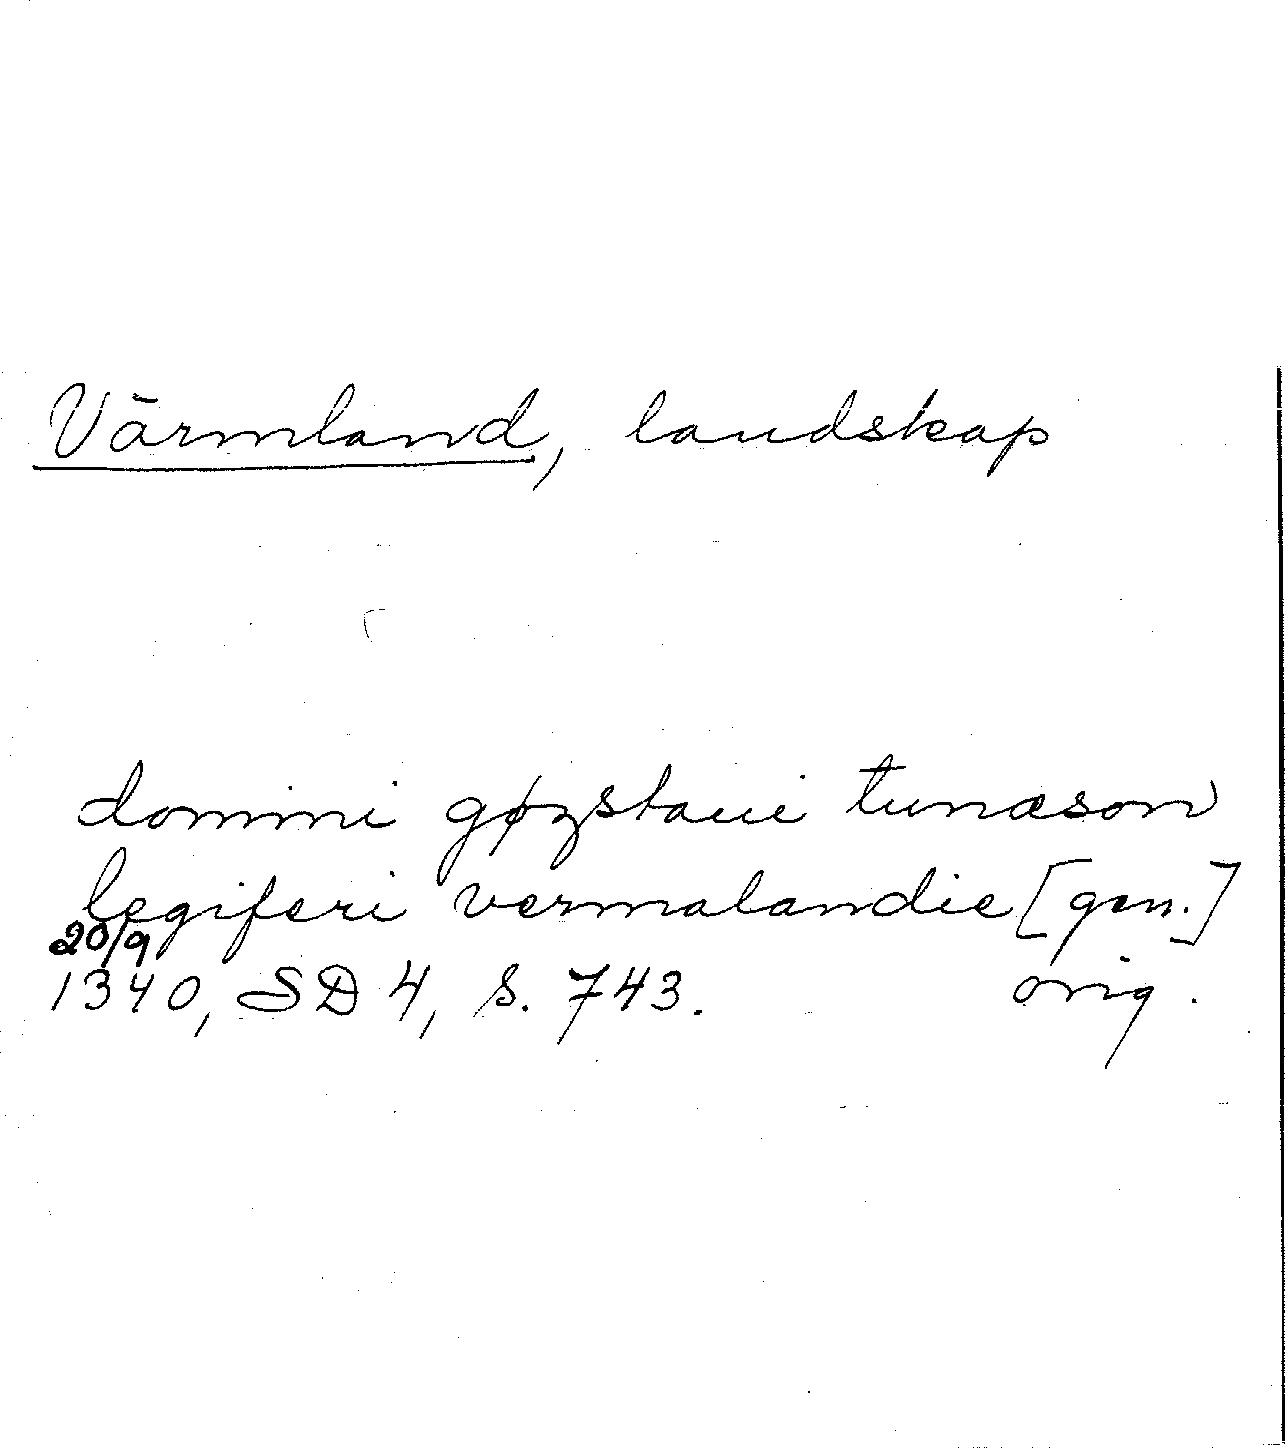 Värmland, landskap
domini gøzstaui tunæson
legiferi vermalandie [gen.]
20/9
1340, SD 4, s. 743. orig.